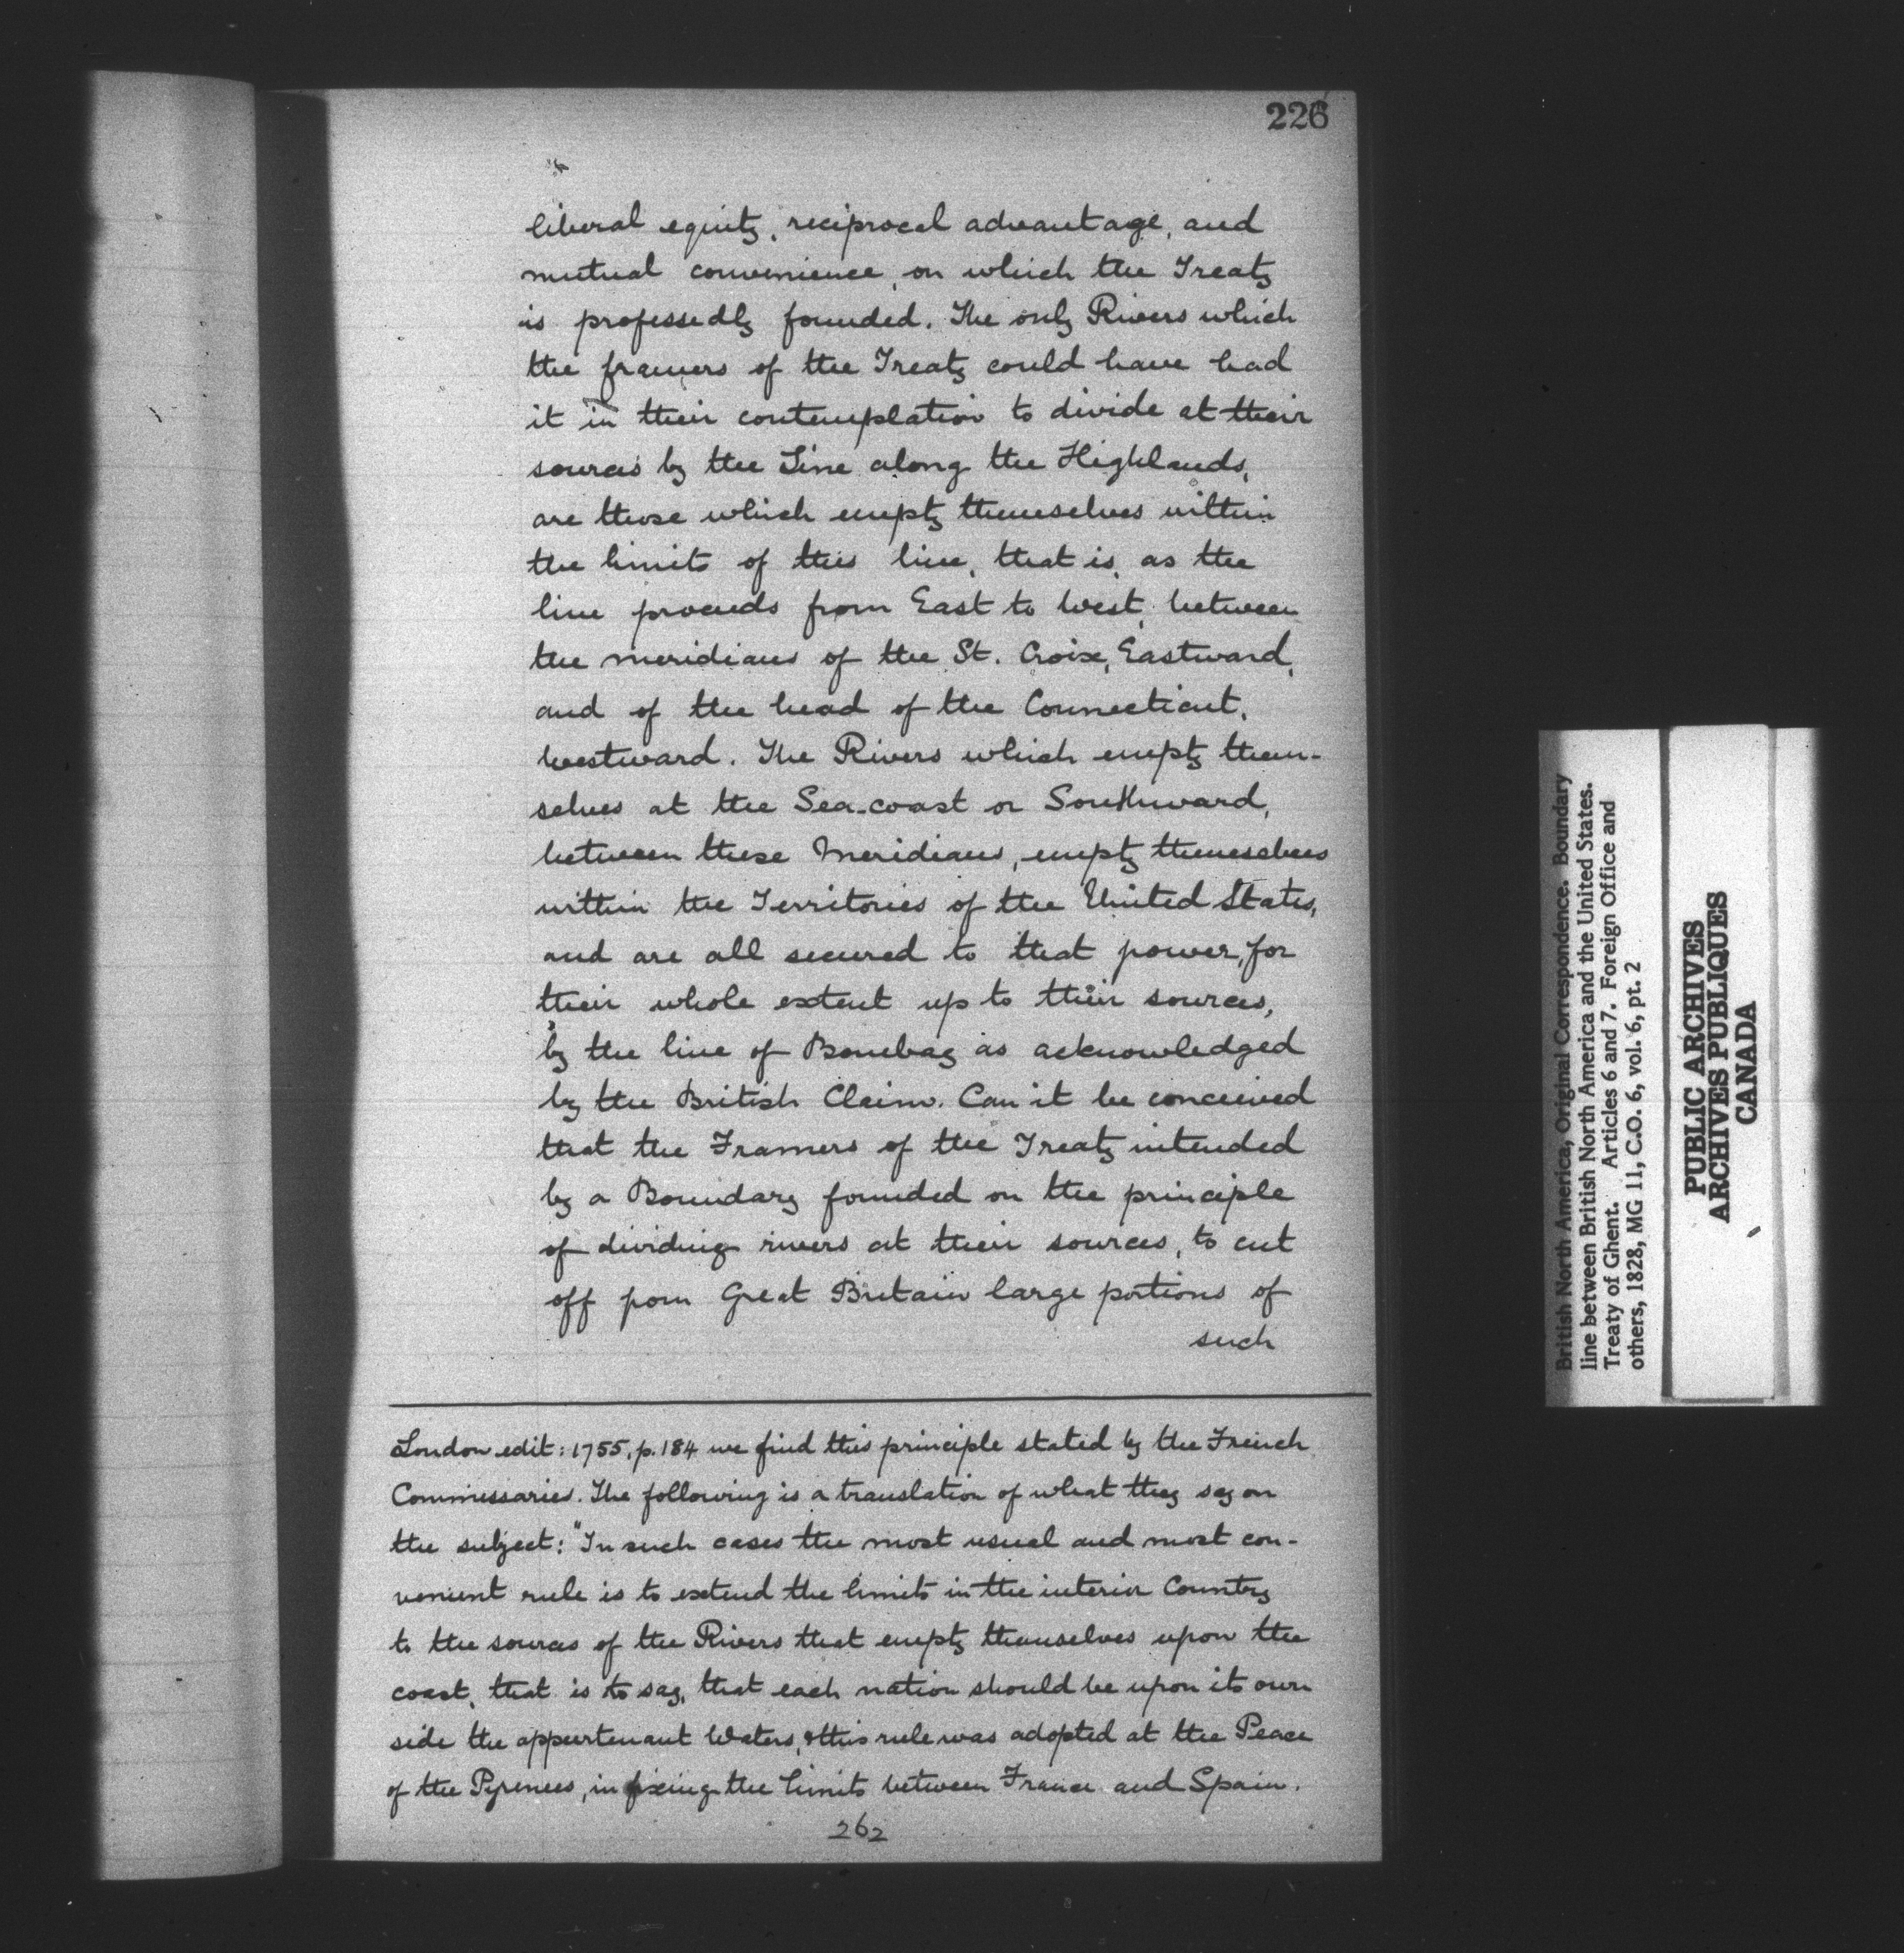 226
liberal equity, reciprocal advantage, and
mutual convenience, on which the Treaty
is professedly founded. The only Rivers which
the framers of the Treaty could have had
it in their contemplation to divide at their
sources by the Line along the Highlands,
are those which empty themselves within
the limits of this line, that is, as the
line proceeds from East to West, between
the meridians of the St. Croix, Eastward,
and of the head of the Connecticut,
Westward. The Rivers which empty them-
selves at the Sea-coast or Southward,
between these Meridians, empty themselves
within the Territories of the United States,
and are all secured to that power, for
their whole extent up to their sources,
by the line of Boundary as acknowledged
by the British Claim. Can it be conceived
that the Framers of the Treaty intended
by a Boundary founded on the principle
of dividing rivers at their sources, to cut
off from Great Britain large portions of
such
London edit: 1755, p. 184 we find this principle stated by the French
Commissaries. The following is a translation of what they say on
the subject: "In such cases the most usual and most con-
venient rule is to extend the limits in the interior Country
to the sources of the Rivers that empty themselves upon the
coast, that is to say, that each nation should be upon its own
side the appurtenant Waters, & this rule was adopted at the Peace
of the Pyrenees, in fixing the limits between France and Spain.
262
British North America, Original Correspondence. Boundary
line between British North America and the United States.
Treaty of Ghent. Articles 6 and 7. Foreign Office and
others, 1828, MG 11, C.O. 6, vol. 6, pt. 2
PUBLIC ARCHIVES
ARCHIVES PUBLIQUES
CANADA